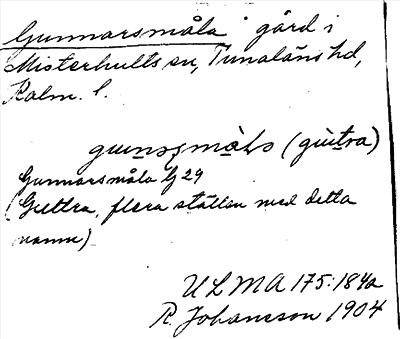 Gunnarsmåla gård i
Misterhults sn, Tunaläns hd,
Kalm. l.
(gùtra)
Gunnarsmåla Lj 29
(Guttra, flera ställen med detta
namn)
ULMA 175:184a
R. Johansson 1904